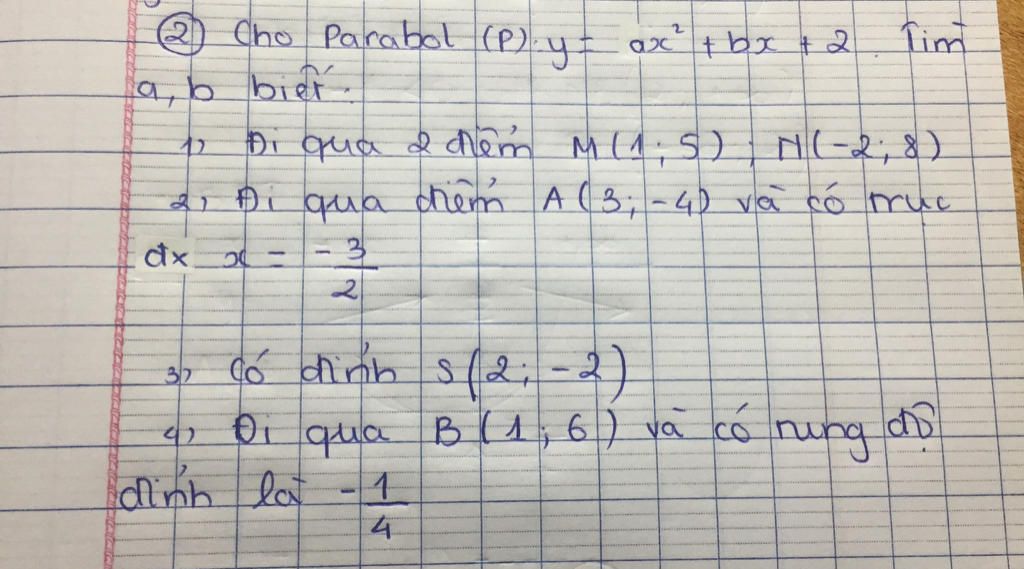 ② Cho Parabol (P): y = ax² + bx + 2. Tìm
a, b biết:
1, Đi qua 2 điểm M(1; 5); N(-2; 8)
2, Đi qua điểm A(3; -4) và có trục
đx x = -3/2
3, Có đỉnh S(2; -2)
4, Đi qua B(1; 6) và có tung độ
đỉnh là -1/4